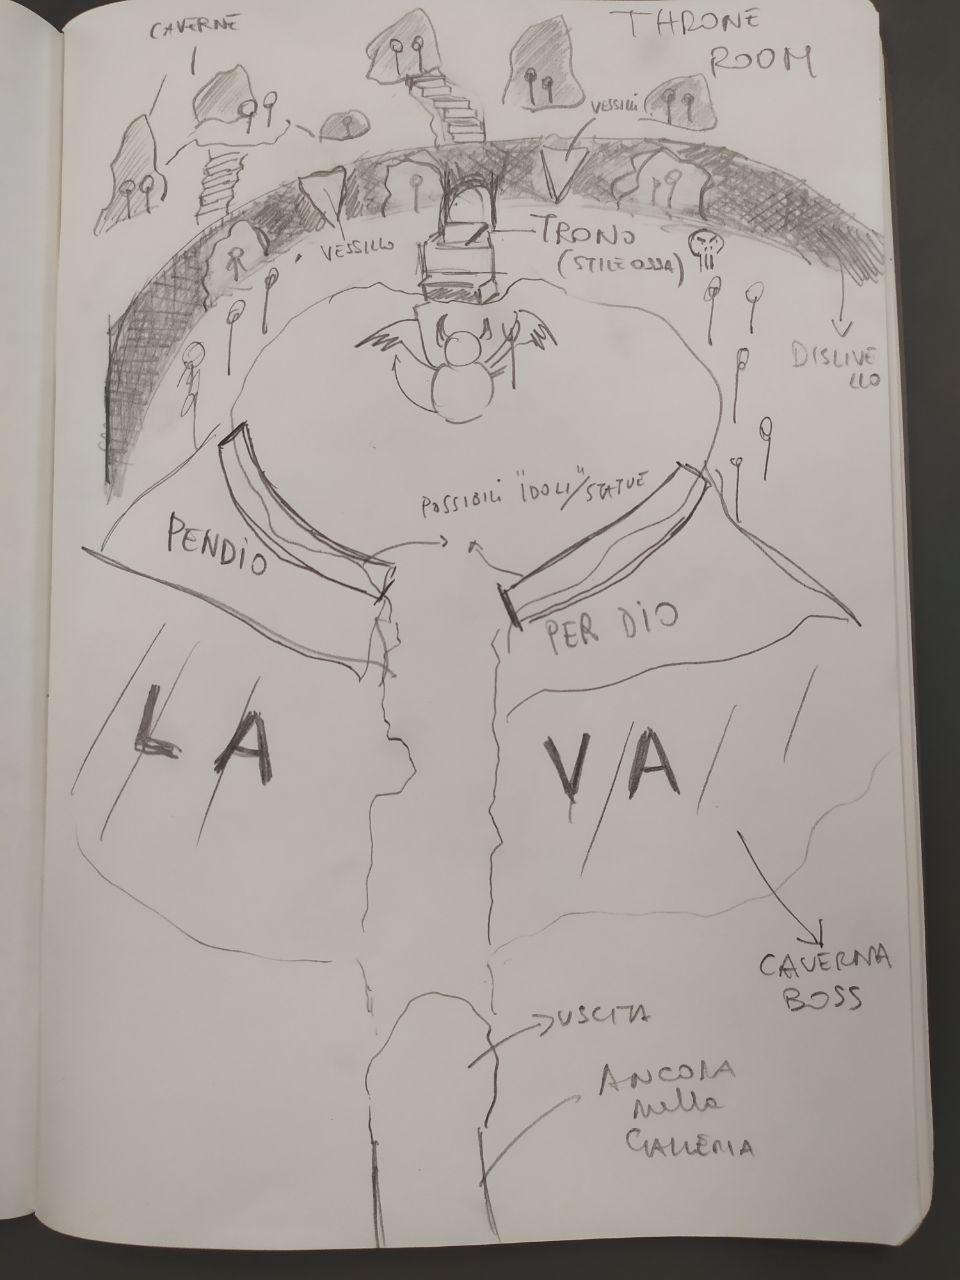 CAVERNE
THRONE
ROOM
VESSILLI
VESSILLO
TRONO
(STILE OSSA)
DISLIVE
LLO
POSSIBILI "IDOLI"/STATUE
PENDIO
PENDIO
LA VA
CAVERNA
BOSS
USCITA
ANCORA
nella
GALLERIA